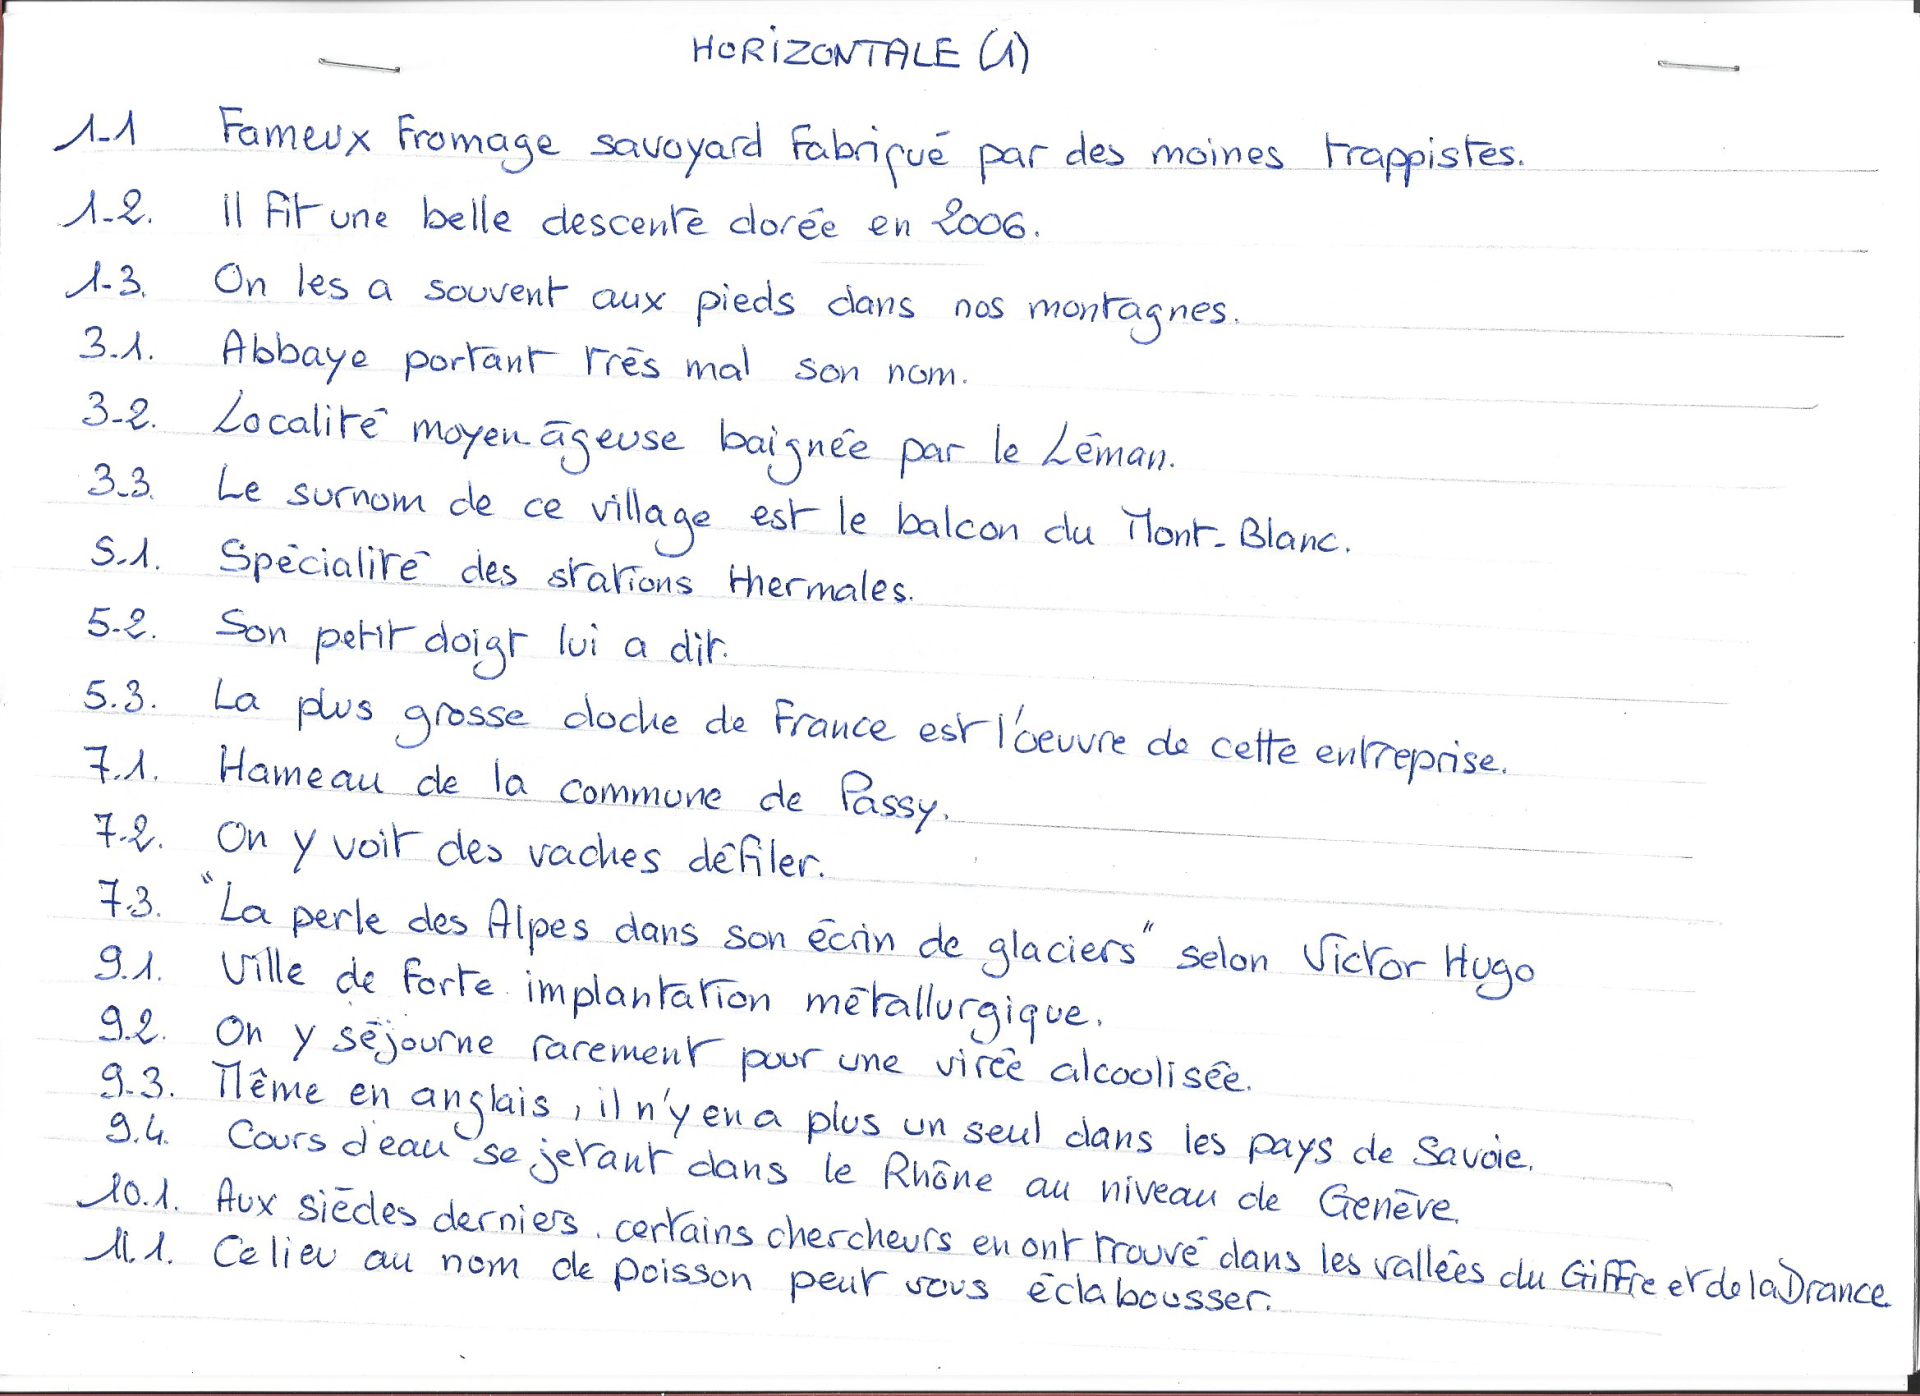 HORIZONTALE (1)
1-1 Fameux fromage savoyard fabriqué par des moines trappistes.
1-2. Il fit une belle descente dorée en 2006.
1-3. On les a souvent aux pieds dans nos montagnes.
3.1. Abbaye portant très mal son nom.
3-2. Localité moyen-âgeuse baignée par le Léman.
3.3. Le surnom de ce village est le balcon du Mont-Blanc.
5.1. Spécialité des stations thermales.
5.2. Son petit doigt lui a dit.
5.3. La plus grosse cloche de France est l'oeuvre de cette entreprise.
7.1. Hameau de la commune de Passy.
7.2. On y voit des vaches défiler.
7.3. "La perle des Alpes dans son écrin de glaciers" selon Victor Hugo
9.1. Ville de forte implantation métallurgique.
9.2. On y séjourne rarement pour une virée alcoolisée.
9.3. Même en anglais, il n'y en a plus un seul dans les pays de Savoie.
9.4. Cours d'eau se jetant dans le Rhône au niveau de Genève.
10.1. Aux siècles derniers, certains chercheurs en ont trouvé dans les vallées du Giffre et de la Drance
11.1. Ce lieu au nom de poisson peut vous éclabousser.